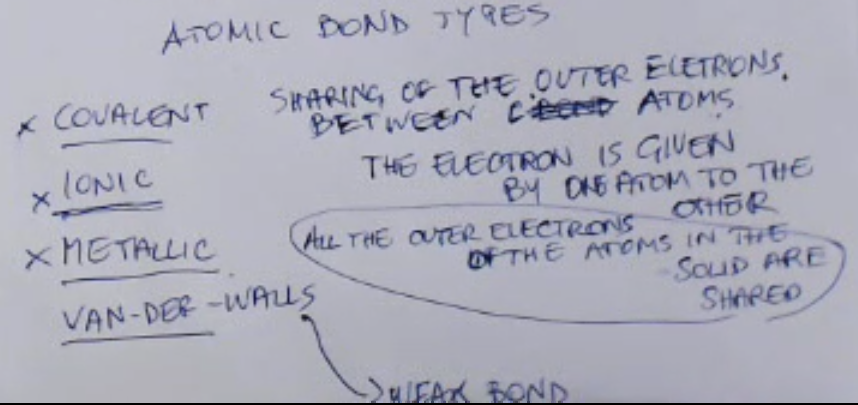 ATOMIC BOND TYPES
× COVALENT SHARING OF THE OUTER ELETRONS.
BETWEEN ATOMS
× IONIC THE ELECTRON IS GIVEN
BY ONE ATOM TO THE
OTHER
× METALLIC ALL THE OUTER ELECTRONS
OF THE ATOMS IN THE
SOLID ARE
SHARED
VAN-DER-WALLS
WEAK BOND